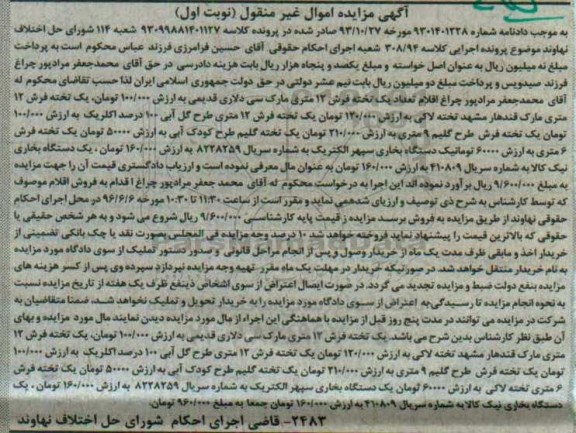 آگهی مزایده اموال غیر منقول (نوبت اول)
به موجب دادنامه شماره ۹۳۰۱۴۰۱۲۲۸ مورخه ۹۳/۱۰/۲۷ صادر شده در پرونده کلاسه ۹۳۰۹۹۸۸۱۴۰۱۱۲۷ شعبه ۱۱۴ شورای حل اختلاف
نهاوند موضوع پرونده اجرایی کلاسه ۳۰۸/۹۴ شعبه اجرای احکام حقوقی آقای حسین فرامرزی فرزند عباس محکوم است به پرداخت
مبلغ نه میلیون ریال به عنوان اصل خواسته و مبلغ یکصد و پنجاه هزار ریال بابت هزینه دادرسی در حق آقای محمدجعفر مرادپور چراغ
فرزند سیدویس و پرداخت مبلغ دو میلیون ریال بابت نیم عشر دولتی در حق دولت جمهوری اسلامی ایران لذا حسب تقاضای محکوم له
آقای محمدجعفر مرادپور چراغ اقلام تعداد یک تخته فرش ۱۲ متری مارک سی دلاری قدیمی به ارزش ۱۰۰/۰۰۰ تومان، یک تخته فرش ۱۲
متری مارک قندهار مشهد تخته لاکی به ارزش ۱۲۰/۰۰۰ تومان یک تخته فرش ۱۲ متری طرح گل آبی ۱۰۰ درصد اکلریک به ارزش ۱۰۰/۰۰۰
تومان یک تخته فرش طرح گلیم ۹ متری به ارزش ۲۱۰/۰۰۰ تومان یک تخته گلیم طرح کودک آبی به ارزش ۵۰۰۰۰ تومان یک تخته فرش
۶ متری به ارزش ۶۰۰۰۰ تومانیک دستگاه بخاری سپهر الکتریک به شماره سریال ۸۲۲۸۲۵۹ به ارزش ۱۶۰/۰۰۰ تومان، یک دستگاه بخاری
نیک کالا به شماره سریال ۴۱۰۸۰۹ به ارزش ۱۶۰/۰۰۰ تومان به عنوان مال معرفی نموده است و ارزیاب دادگستری قیمت آن را جهت مزایده
به مبلغ ۹/۶۰۰/۰۰۰ ریال برآورد نموده اند این اجرا به درخواست محکوم له آقای محمد جعفر مرادپور چراغ اقدام به فروش اقلام موصوف
که توسط کارشناس به شرح ذی توصیف و ارزیای شدهمی نماید و مقرر است از ساعت ۱۱:۳۰ تا ۱۰:۳۰ مورخه ۹۶/۶/۶ در محل اجرای احکام
حقوقی نهاوند از طریق مزایده به فروش برسد مزایده ز قیمت پایه کارشناسی ۹/۶۰۰/۰۰۰ ریال شروع می شود و به هر شخص حقیقی یا
حقوقی که بالاترین قیمت را پیشنهاد نماید فروخته خواهد شد ۱۰ درصد وجه مزایده فی المجلس بصورت نقد یا چک بانکی تضمینی از
خریدار اخذ و مابقی ظرف مدت یک ماه از خریدار وصول و پس از انجام مراحل قانونی و صدور دستور تملیک از سوی دادگاه مورد مزایده
به نام خریدار منتقل خواهد شد. در صورتیکه خریدار در مهلت یک ماه مقرر تهیه وجه مزایده نپردازد سپرده وی پس از کسر هزینه های
مزایده بنفع دولت ضبط و مزایده تجدید می گردد. در صورت ایصال اعتراض از سوی اشخاص ذینفع ظرف یک هفته از تاریخ مزایده نسبت
به نحوه انجام مزایده تا رسیدگی به اعتراض از سوی دادگاه مورد مزایده را به خریدار تحویل و تملیک نخواهد شد، ضمنا متقاضیان به
شرکت در مزایده می توانند در مدت پنج روز قبل از مزایده با هماهنگی این اجراء از مال مورد مزایده دیدن نمایند مال مورد مزایده و بهای
آن طبق نظر کارشناس بدین شرح می باشد. یک تخته فرش ۱۲ متری مارک سی دلاری قدیمی به ارزش ۱۰۰/۰۰۰ تومان، یک تخته فرش ۱۲
متری مارک قندهار مشهد تخته لاکی به ارزش ۱۲۰/۰۰۰ تومان یک تخته فرش ۱۲ متری طرح گل آبی ۱۰۰ درصد اکلریک به ارزش ۱۰۰/۰۰۰
تومان یک تخته فرش طرح گلیم ۹ متری به ارزش ۲۱۰/۰۰۰ تومان یک تخته گلیم طرح کودک آبی به ارزش ۵۰۰۰۰ تومان یک تخته فرش
۶ متری تخته لاکی به ارزش ۶۰۰۰۰ تومان یک دستگاه بخاری سپهر الکتریک به شماره سریال ۸۲۲۸۲۵۹ به ارزش ۱۶۰/۰۰۰ تومان، یک
دستگاه بخاری نیک کالا به شماره سریال ۴۱۰۸۰۹ به ارزش ۱۶۰/۰۰۰ تومان جمعا به مبلغ ۹۶۰/۰۰۰ تومان.
۲۴۸۳- قاضی اجرای احکام شورای حل اختلاف نهاوند